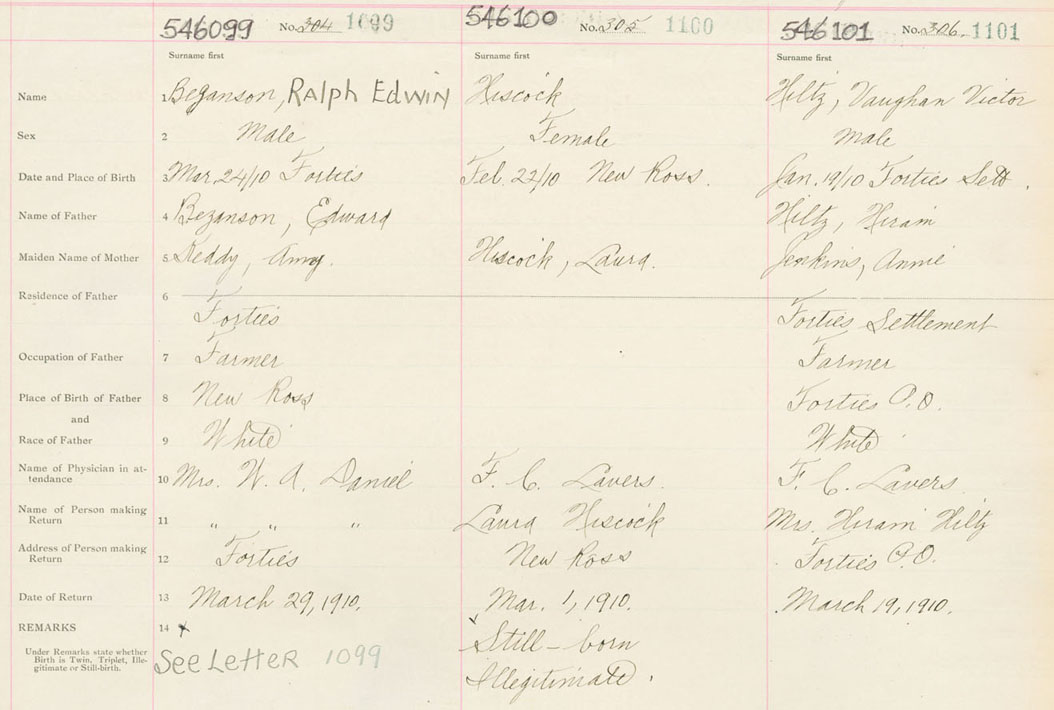 546099 No. 304 1099 546100 No. 305 1100 546101 No. 306 1101
Surname first Surname first Surname first
Name 1 Bezanson, Ralph Edwin Hiscock Hiltz, Vaughan Victor
Sex 2 Male Female Male
Date and Place of Birth 3 Mar. 24/10 Forties Feb. 22/10 New Ross. Jan. 19/10 Forties Sett.
Name of Father 4 Bezanson, Edward Hiltz, Hiram
Maiden Name of Mother 5 Keddy, Amy. Hiscock, Laura. Jenkins, Annie
Residence of Father 6
Forties Forties Settlement
Occupation of Father 7 Farmer Farmer
Place of Birth of Father 8 New Ross Forties P.O.
and
Race of Father 9 White White
Name of Physician in at-
tendance 10 Mrs. W. A. Daniel F. C. Lavers. F. C. Lavers
Name of Person making
Return 11 " " " Laura Hiscock Mrs. Hiram Hiltz
Address of Person making
Return 12 Forties New Ross Forties P.O.
Date of Return 13 March 29, 1910. Mar. 1, 1910. March 19, 1910.
REMARKS 14 x Still-born
Under Remarks state whether
Birth is Twin, Triplet, Ille-
gitimate or Still-birth. See Letter 1099 Illegitimate.